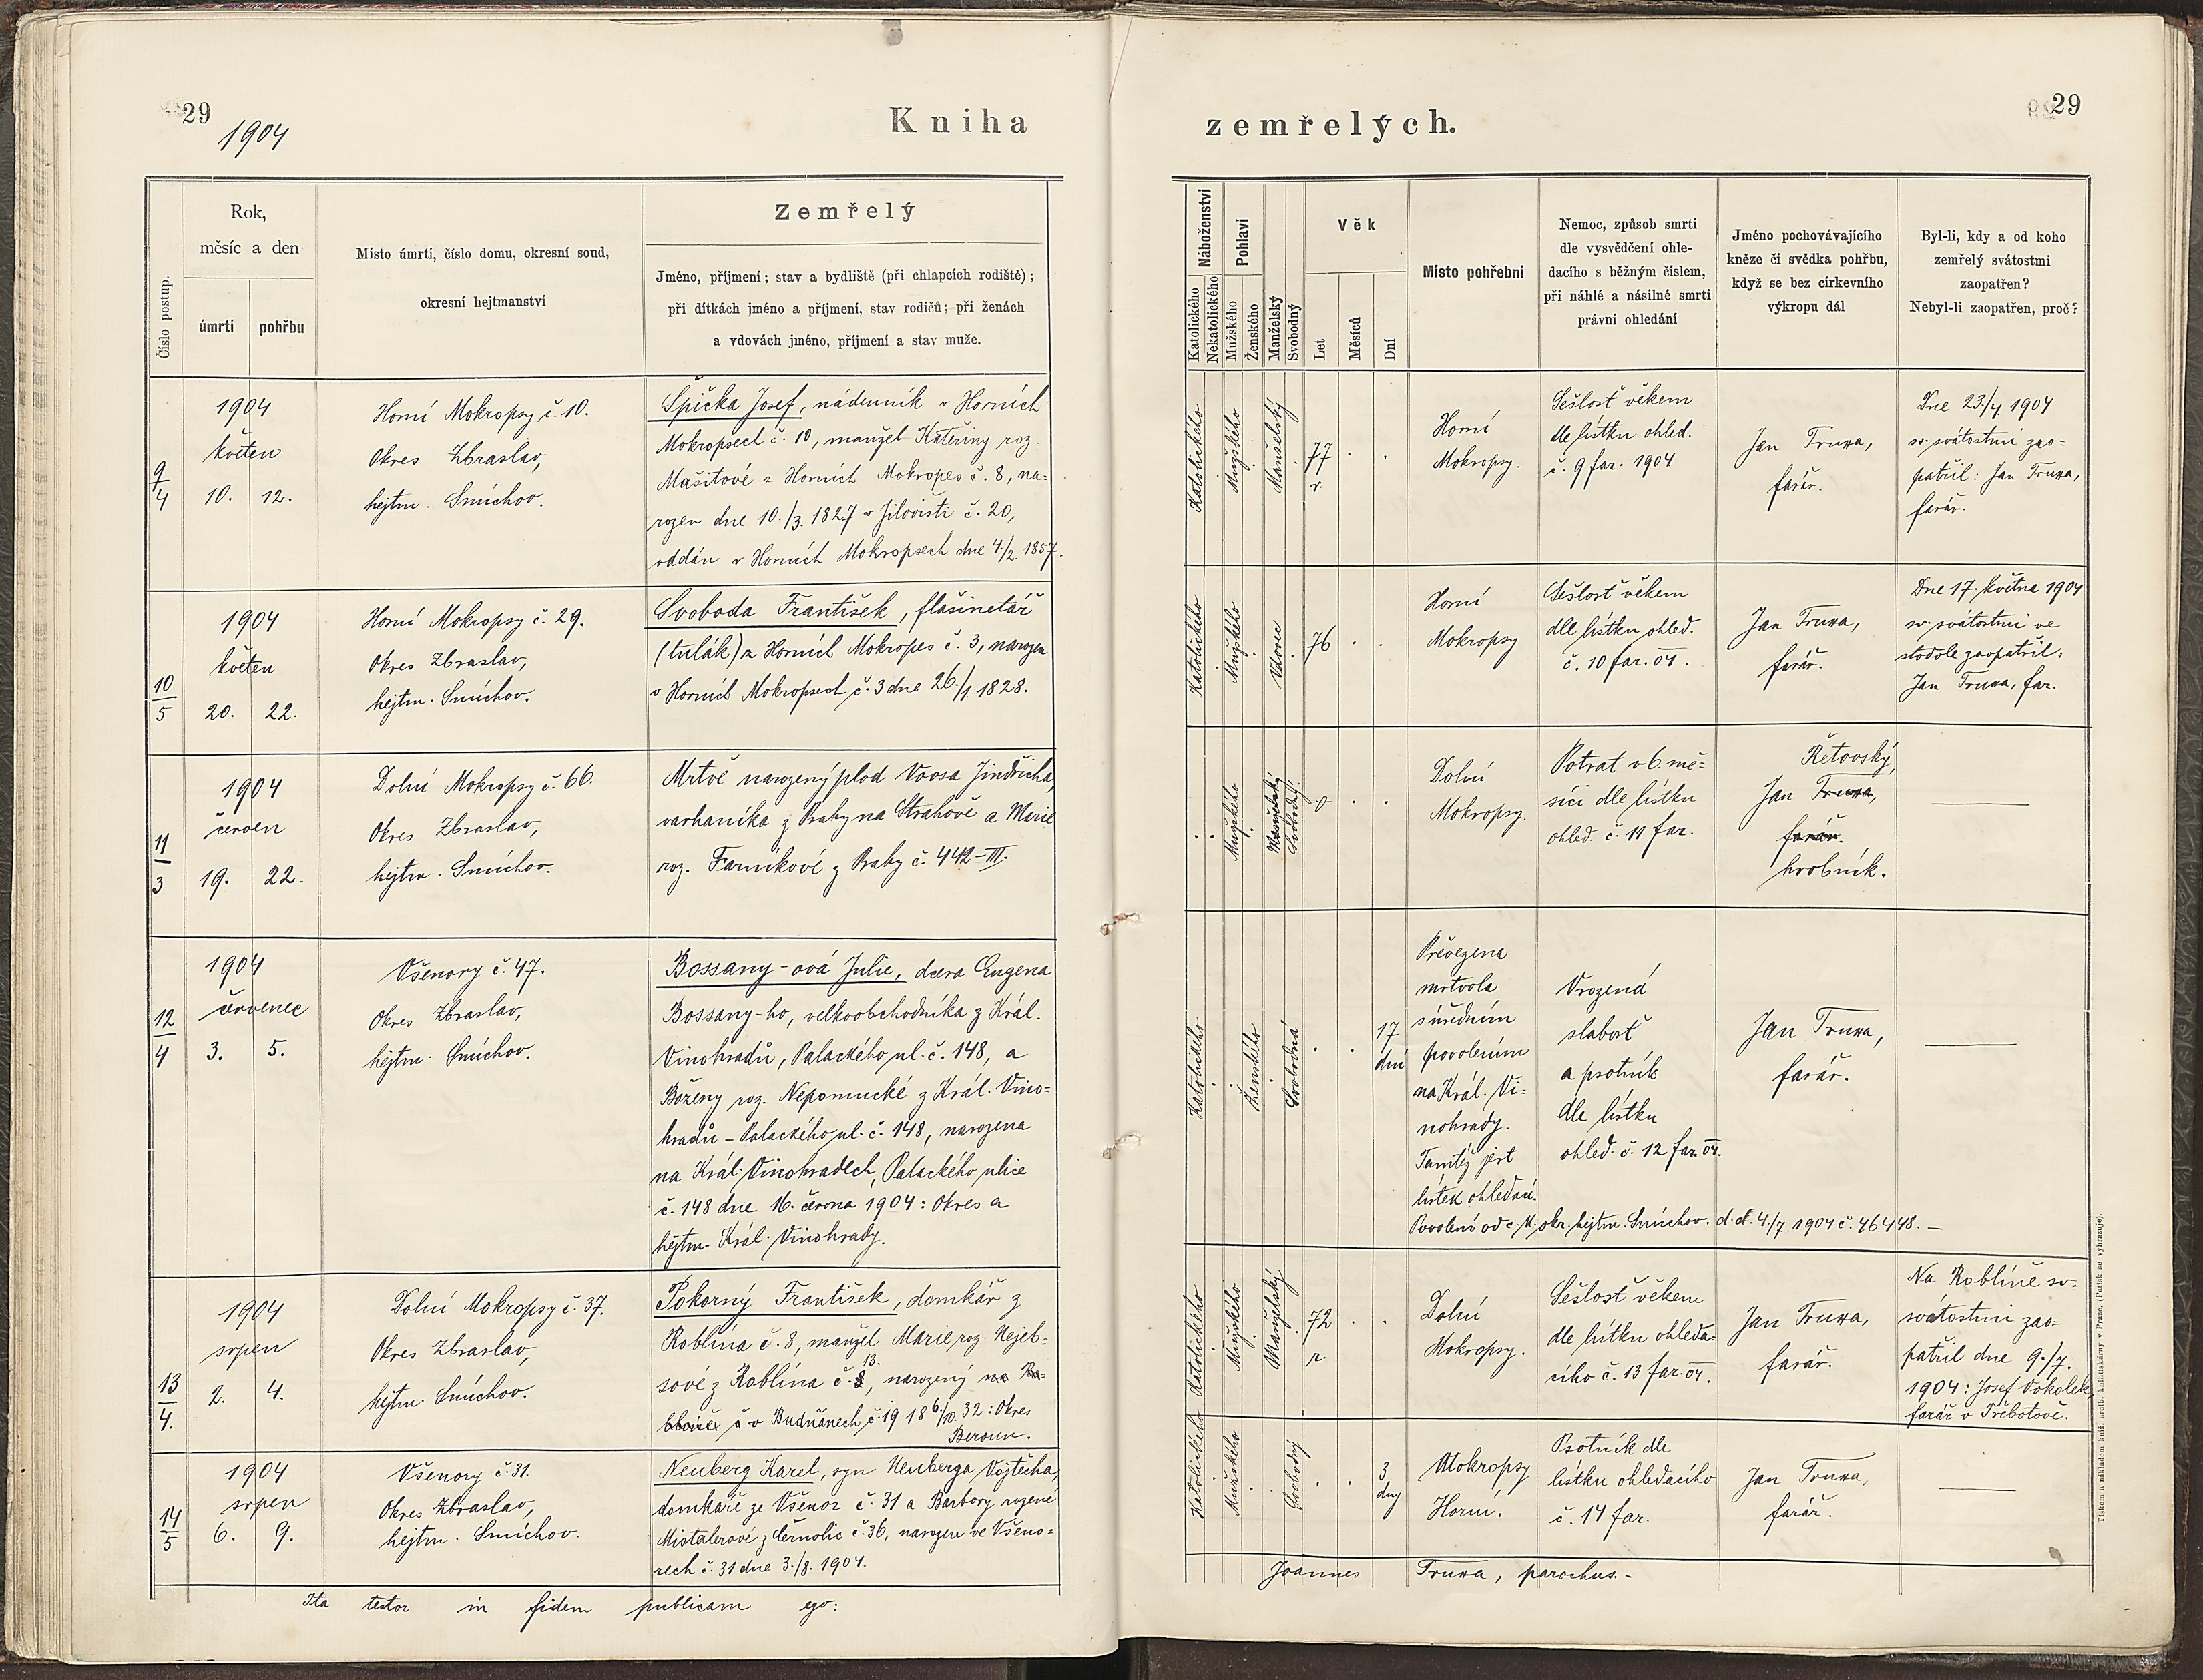 29
1904
Kniha
zemřelých.
29
Číslo postup.
Rok,
měsíc a den
úmrtí
pohřbu
Místo úmrtí, číslo domu, okresní soud,
okresní hejtmanství
Zemřelý
Jméno, příjmení; stav a bydliště (při chlapcích rodiště);
při dítkách jméno a příjmení, stav rodičů; při ženách
a vdovách jméno, příjmení a stav muže.
Náboženství
Katolického
Nekatolického
Pohlaví
Mužského
Ženského
Manželský
Svobodný
Věk
Let
Měsíců
Dní
Místo pohřební
Nemoc, způsob smrti
dle vysvědčení ohle-
dacího s běžným číslem,
při náhlé a násilné smrti
právní ohledání
Jméno pochovávajícího
kněze či svědka pohřbu,
když se bez církevního
výkropu dál
Byl-li, kdy a od koho
zemřelý svátostmi
zaopatřen?
Nebyl-li zaopatřen, proč?
9/4
1904
květen
10. 12.
Horní Mokropsy č. 10.
Okres Zbraslav,
hejtm. Smíchov.
Špička Josef, nádenník v Horních
Mokropsech č. 10, manžel Kateřiny roz.
Mašitové z Horních Mokropes č. 8, na-
rozen dne 10./3. 1827 v Jílovišti č. 20,
oddán v Horních Mokropsech dne 4./2. 1857.
Katolického
Mužského
Manželský
77
r.
Horní
Mokropsy.
Sešlost věkem
dle lístku ohled.
č. 9 far. 1904
Jan Truxa,
farář.
Dne 23./4. 1904
sv. svátostmi zao-
patřil: Jan Truxa,
farář.
10/5
1904
květen
20. 22.
Horní Mokropsy č. 29.
Okres Zbraslav,
hejtm. Smíchov.
Svoboda František, flašinetář
(tulák) z Horních Mokropes č. 3, narozen
v Horních Mokropsech č. 3 dne 26./1. 1828.
Katolického
Mužského
Vdovec
76
Horní
Mokropsy
Sešlost věkem
dle lístku ohled.
č. 10 far. 04.
Jan Truxa,
farář.
Dne 17. května 1904
sv. svátostmi ve
stodole zaopatřil:
Jan Truxa, far.
11/3
1904
červen
19. 22.
Dolní Mokropsy č. 66.
Okres Zbraslav,
hejtm. Smíchov.
Mrtvě narozený plod Voosa Jindřicha,
varhaníka z Prahy na Strahově a Marie
roz. Farníkové z Prahy č. 442-III.
Mužského
Manželský
Svobodný
Dolní
Mokropsy.
Potrat v 6. mě-
síci dle lístku
ohled. č. 11 far.
Řetovský,
Jan Truxa,
farář.
hrobník.
12/4
1904
červenec
3. 5.
Všenory č. 47.
Okres Zbraslav,
hejtm. Smíchov.
Bossany-ová Julie, dcera Eugena
Bossany-ho, velkoobchodníka z Král.
Vinohradů, Palackého ul. č. 148, a
Boženy roz. Nepomucké z Král. Vino-
hradů - Palackého ul. č. 148, narozena
na Král. Vinohradech, Palackého ulice
č. 148 dne 16. června 1904: Okres a
hejtm. Král. Vinohrady.
Katolického
Ženského
Svobodná
17
dní
Převezena
mrtvola
s úředním
povolením
na Král. Vi-
nohrady.
Tamtéž jest
lístek ohledací.
Povolení od c. k. okr. hejtm. Smíchov. d. d. 4./7. 1904 č. 46448. —
Vrozená
slabost
a psotník
dle lístku
ohled. č. 12 far. 04.
Jan Truxa,
farář.
13/4.
1904
srpen
2. 4.
Dolní Mokropsy č. 37.
Okres Zbraslav,
hejtm. Smíchov.
Pokorný František, domkář z
Roblína č. 8, manžel Marie roz. Nejeb-
sové z Roblína č. 8 13., narozený na Ro-
blíně v Budňanech č. 19 18 6./10. 32: Okres
Beroun.
Katolického
Mužského
Manželský
72
r.
Dolní
Mokropsy.
Sešlost věkem
dle lístku ohleda-
cího č. 13 far. 04.
Jan Truxa,
farář.
Na Roblíně sv.
svátostmi zao-
patřil dne 9./7.
1904: Josef Vokolek,
farář v Třebotově.
14/5
1904
srpen
6. 9.
Všenory č. 31.
Okres Zbraslav,
hejtm. Smíchov.
Neuberg Karel, syn Neuberga Vojtěcha,
domkáře ze Všenor č. 31 a Barbory rozené
Mistalerové z Černolic č. 36, narozen ve Všeno-
rech č. 31 dne 3./8. 1904.
Katolického
Mužského
Svobodný
3
dny
Mokropsy
Horní.
Psotník dle
lístku ohledacího
č. 14 far.
Jan Truxa,
farář.
Ita testor in fidem publicam ego:
Joannes Truxa, parochus.-
Tiskem a nákladem kníž. arcib. knihtiskárny v Praze. (Patisk se vyhrazuje).